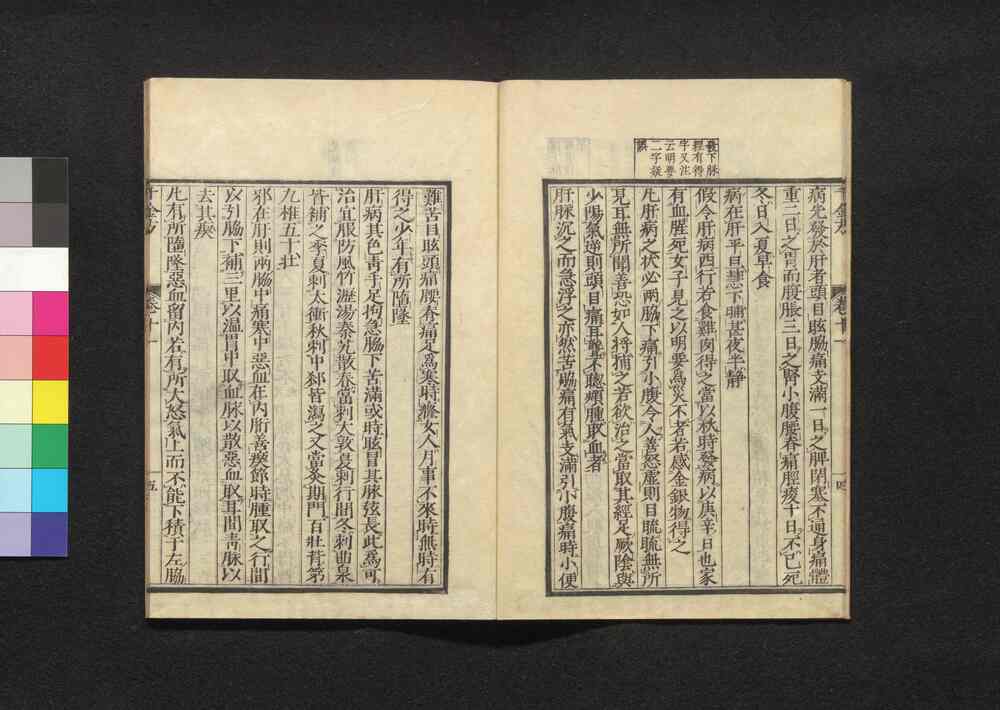 病先發於肝者頭目眩脇痛支滿一日之脾閉塞不通身痛體
重二日之胃而腹脹三日之腎小腹腰脊痛脛痠十日不已死
冬日入夏早食
病在肝平旦慧下晡甚夜半靜
假令肝病西行若食雞肉得之當以秋時發病以庚辛日也家
有血腥死女子見之以明要爲災不者若感金銀物得之
凡肝病之狀必兩脇下痛引小腹令人善怒虛則目䀮䀮無所
見耳無所聞善恐如人將捕之若欲治之當取其經足厥陰與
少陽氣逆則頭目痛耳聾不聰頰腫取血者
肝脉沉之而急浮之亦然苦脇痛有氣支滿引小腹痛時小便
發下脉
經有得
字又注
云明要
二字疑
誤
千金方
卷十一
十四
難苦目眩頭痛腰脊痛足爲寒時癃女人月事不來時無時有
得之少年有所墮墜
肝病其色靑手足拘急脇下苦滿或時眩冒其脉弦長此爲可
治宜服防風竹瀝湯秦艽散春當刺大敦夏刺行間冬刺曲泉
皆補之季夏刺太衝秋刺中郄皆瀉之又當灸期門百壯背第
九椎五十壯
邪在肝則兩脇中痛寒中惡血在內胻善瘈節時腫取之行間
以引脇下補三里以溫胃中取血脉以散惡血取耳間靑脉以
去其瘈
凡有所墮墜惡血留內若有所大怒氣上而不能下積于左脇
千金方
卷十一
十五